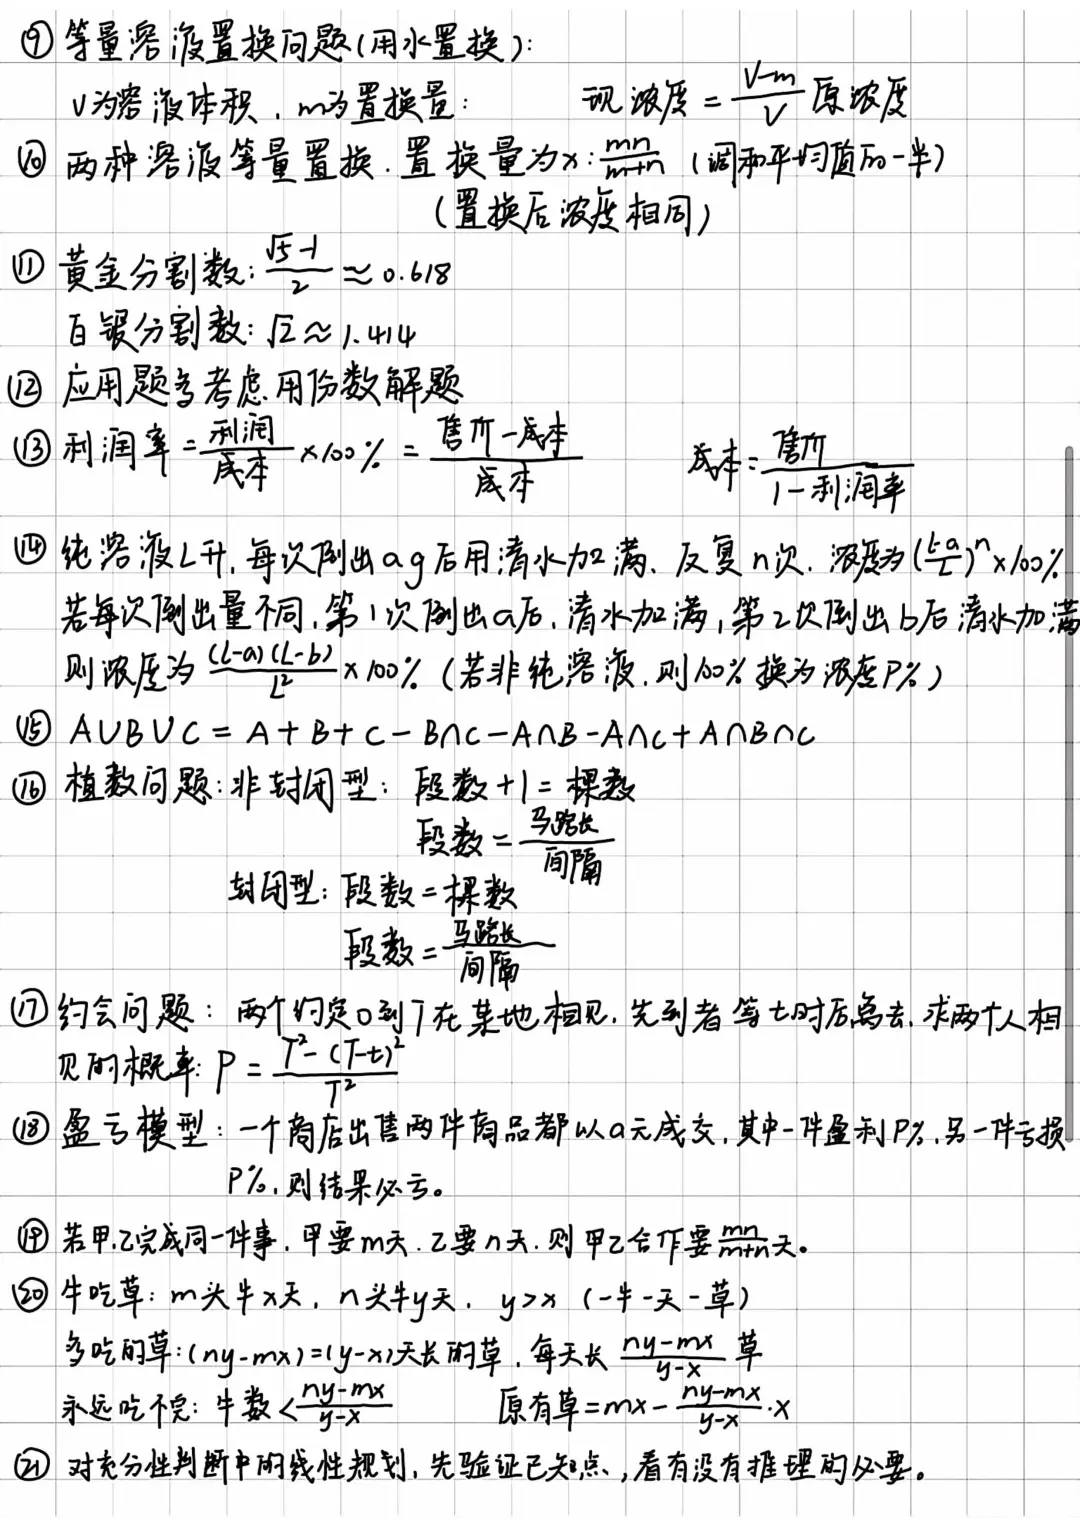 ⑨ 等量溶液置换问题(用水置换):
V为溶液体积,m为置换量: 现浓度=\frac{V-m}{V}原浓度
⑩ 两种溶液等量置换.置换量为x:\frac{mn}{m+n} (调和平均值的一半)
(置换后浓度相同)
⑪ 黄金分割数:\frac{√5-1}{2}≈0.618
白银分割数:√2≈1.414
⑫ 应用题多考虑用份数解题
⑬ 利润率=\frac{利润}{成本}×100%=\frac{售价-成本}{成本} 成本=\frac{售价}{1-利润率}
⑭ 纯溶液L升,每次倒出ag后用清水加满、反复n次.浓度为(\frac{L-a}{L})^n×100%
若每次倒出量不同,第1次倒出a后,清水加满,第2次倒出b后清水加满
则浓度为\frac{(L-a)(L-b)}{L²}×100% (若非纯溶液.则100%换为浓度P%)
⑮ A∪B∪C=A+B+C-B∩C-A∩B-A∩C+A∩B∩C
⑯ 植数问题:非封闭型: 段数+1=棵数
段数=\frac{马路长}{间隔}
封闭型:段数=棵数
段数=\frac{马路长}{间隔}
⑰ 约会问题: 两个约定0到T在某地相见,先到者等t时后离去,求两个人相
见的概率:P=\frac{T²-(T-t)²}{T²}
⑱ 盈亏模型:一个商店出售两件商品都以a元成交,其中一件盈利P%,另一件亏损
P%,则结果必亏。
⑲ 若甲.乙完成同一件事,甲要m天.乙要n天.则甲乙合作要\frac{mn}{m+n}天。
⑳ 牛吃草:m头牛x天,n头牛y天, y>x (一牛一天一草)
多吃的草:(ny-mx)=(y-x)天长的草,每天长\frac{ny-mx}{y-x}草
永远吃不完:牛数<\frac{ny-mx}{y-x} 原有草=mx-\frac{ny-mx}{y-x}·x
㉑ 对充分性判断中的线性规划,先验证已知点,看有没有推理的必要。